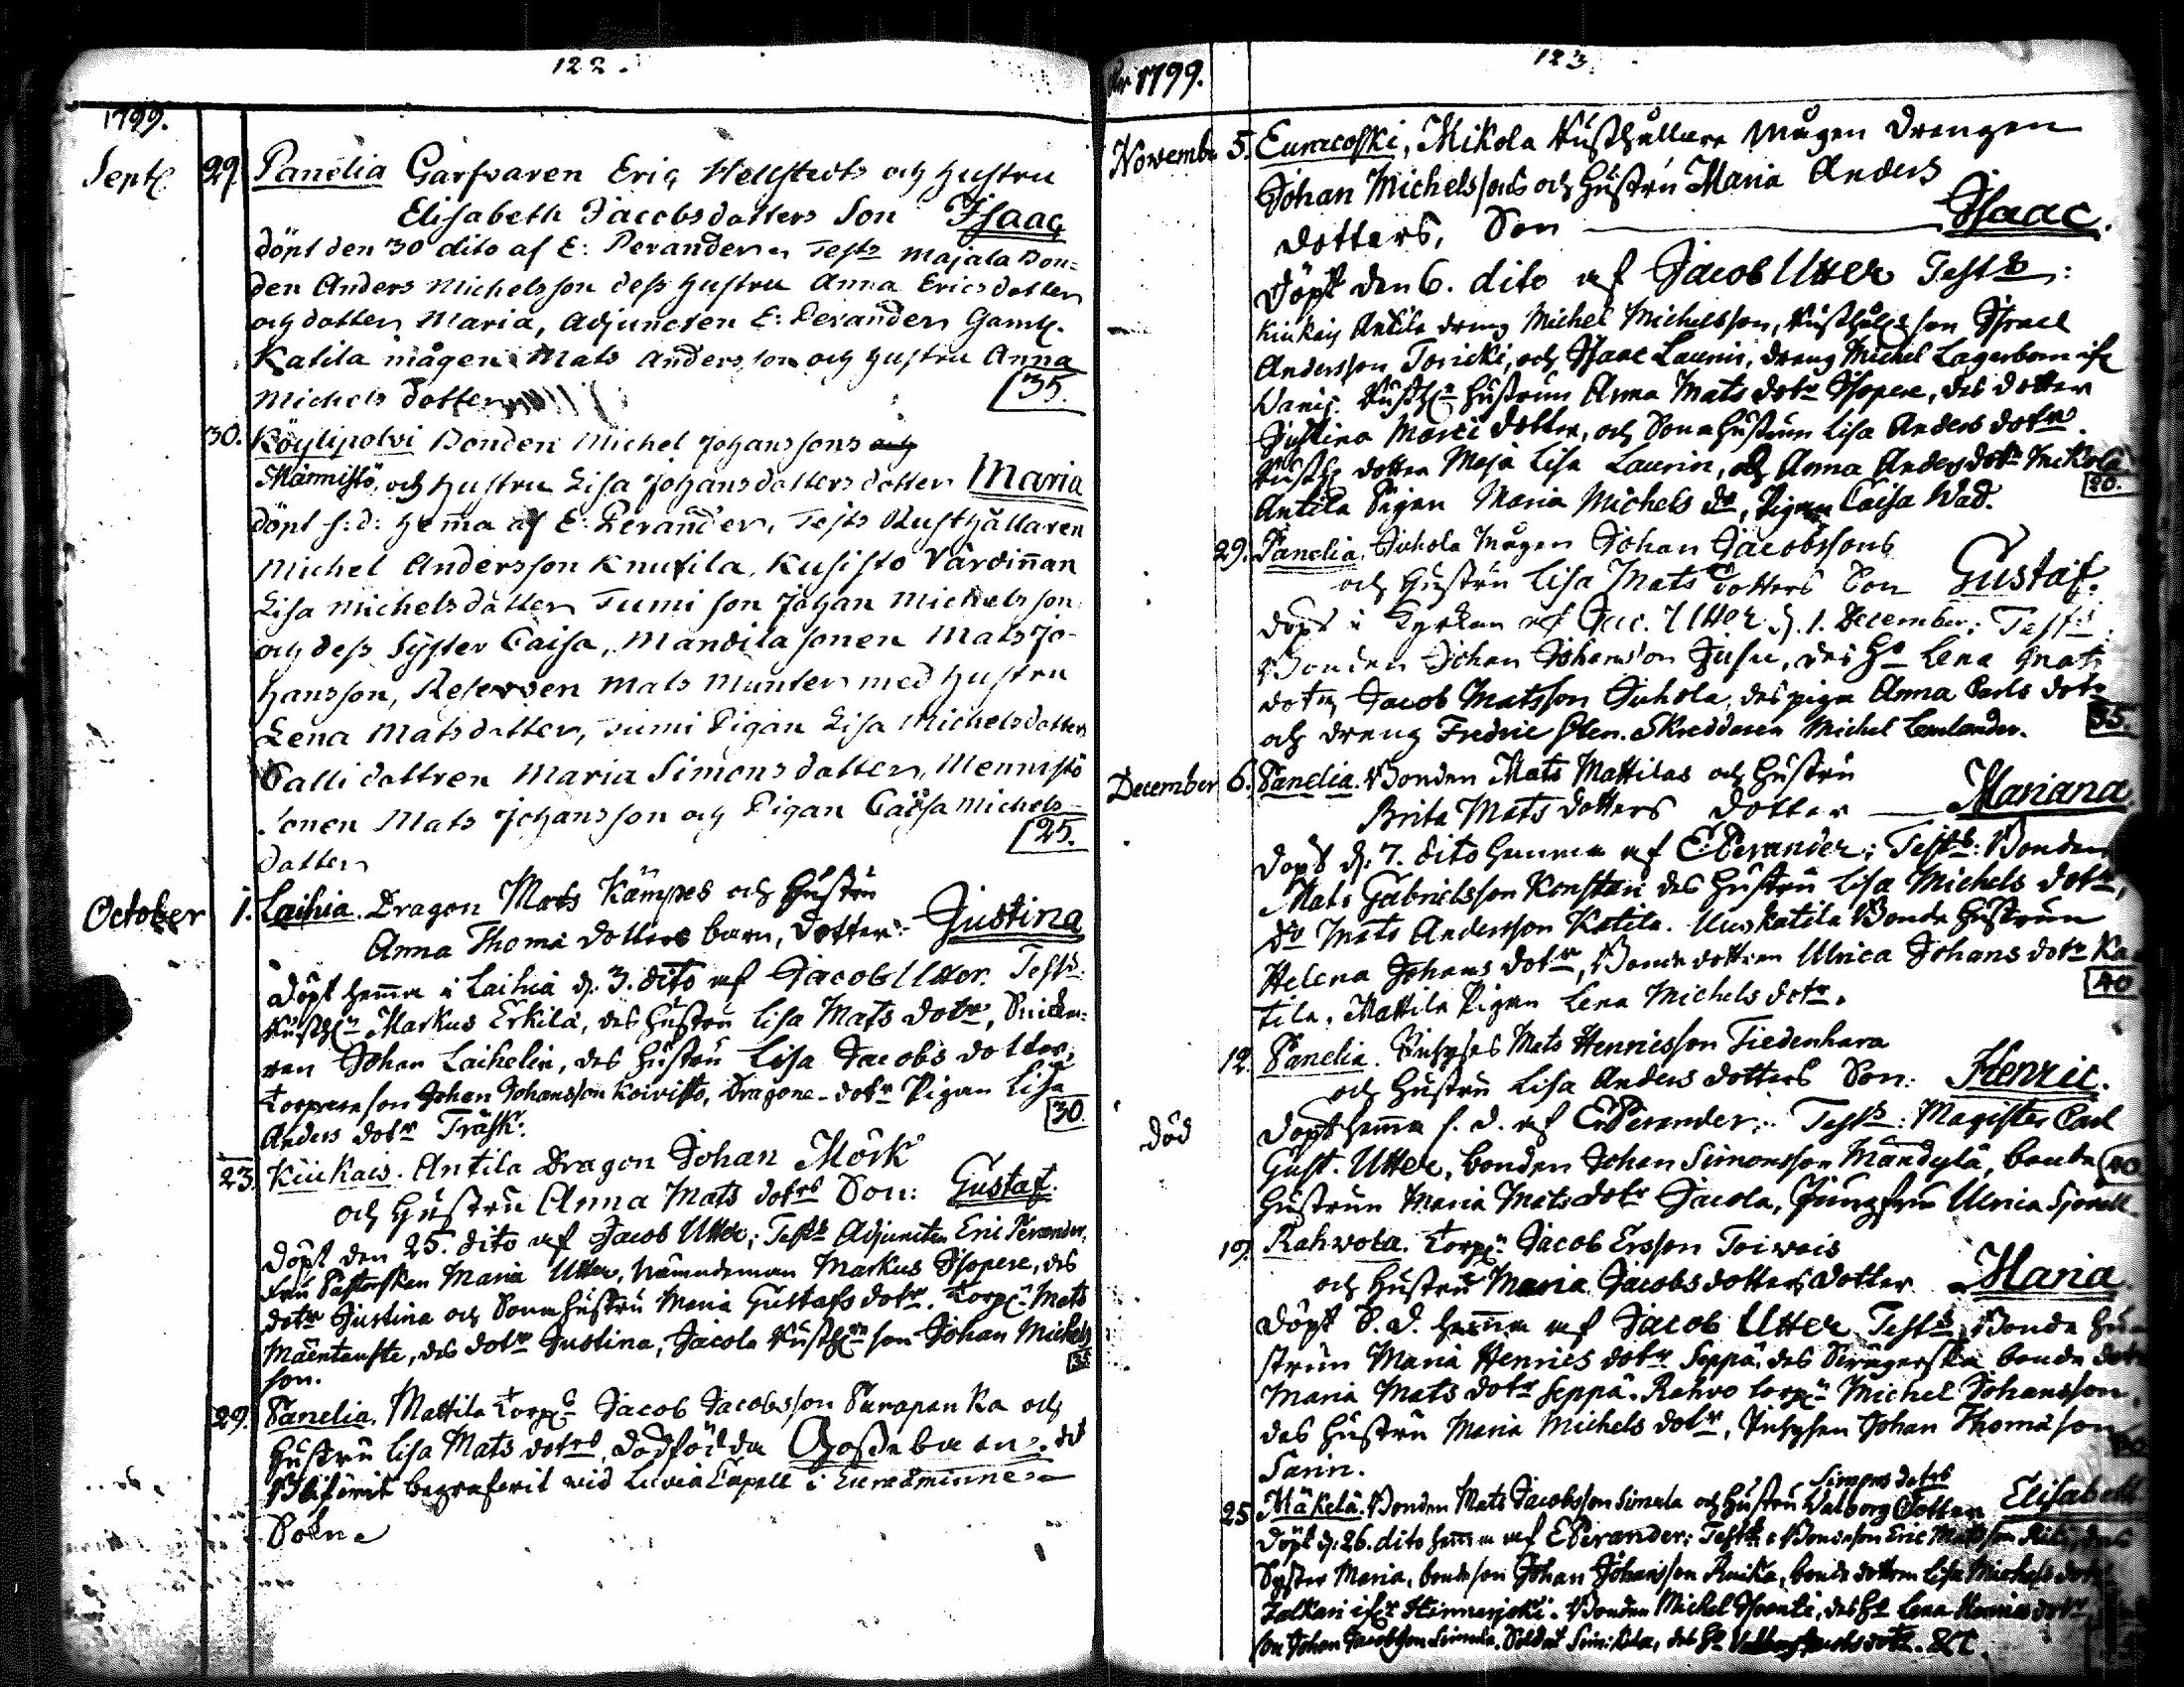 122.
1799.
Septe 29. Panelia Garfvaren Eric Hellstedts och hustru
Elisabeth Jacobsdotters Son Isaac
döpt den 30 dito af E: Perander, Tests Majala Bon=
den Anders Michelsson dess hustru Anna Ericsdotter
och dotter Maria, Adjuncten E: Perander, Gaml.
Katila mågen Mats Andersson och hustru Anna
Michels dotter 35.
30. Köylipolvi Bonden Michel Johanssons och
Männistö, och hustru Lisa Johansdotters dotter Maria
döpt s: d: hema af E: Perander, Tests Rusthållaren
Michel Andersson Knutila, Kusisto Värdinnan
Lisa Michelsdotter Tumi son Johan Michelsson
och dess Syster Caisa, Mandila sonen Mats Jo-
hansson, Reserven Mats Munter med hustru
Lena Matsdotter, Tumi Pigan Lisa Michelsdotter
Talli dottren Maria Simonsdotter, Mennistö
Sonen Mats Johansson och Pigan Caisa Michels
dotter 25.
October 1. Laihia. Dragon Mats Kämpes och Hustru
Anna Thomæ dotters barn, dotter: Justina
döpt hema i Laihia d. 3. dito af Jacob Utter. Tests:
Rusthn Markus Erkilä, des hustru Lisa Mats dotr, Snicka-
ren Johan Laihelin, des hustru Lisa Jacobs dotter,
Torpareson Johan Johansson Koivisto, Dragone-dotr Pigan Lisa
Anders dotr Träsk. 30.
23. Kiukais. Antila Dragon Johan Mörk
och Hustru Anna Mats dotrs Son: Gustaf.
döpt den 25. dito af Jacob Utter; Tests Adjuncten Eric Perander,
Fru Pastorskan Maria Utter, Nämndeman Markus Isopere, des
dotr Justina och Sonahustru Maria Gustafs dotr. Torpn Mats
Mäentauste, des dotr Justina, Jacola Rusthns son Johan Michels
son. 35
29. Panelia. Mattila Torpn Jacob Jacobsson Purapanka och
Hustru Lisa Mats dotrs, dödfödda Gossebarn.
begrafvit vid Luvia Capell i Euraåminne
Sokne
123.
Av 1799.
Novembr 5. Euracoski, Mikola Rusthållare Mågen Drengen
Johan Michelssons och Hustru Maria Anders
dotters, Son Isaac.
Döpt den 6. dito af Jacob Utter Tests:
Kiukais Antila dreng Michel Michelsson, Rusthålls son Israel
Andersson Toricki, och Isaac Laurin, dreng Michel Lagerbom
Hustrun Anna Mats dotr Isopere, des dotter
Justina Marci dotter, och Sonahustrun Lisa Anders dotr.
Rusth: dotter Maja Lisa Laurin, och Anna Anders dotr Mikola
Antila Pigan Maria Michels dr, Pigan Caisa Wad. 20.
29. Panelia. Juhola Mågen Johan Jacobssons
och Hustru Lisa Mats dotters Son Gustaf.
döpt i Kyrkan af Jac. Utter d. 1. December: Tests:
Bonden Johan Johansson Jusu, des Ha Lena Mats
dotr, Jacob Matsson Juhola, des piga Anna Carls dotr
och dreng Fredric Sten. Skreddaren Michel Lemlander. 35.
December 6. Panelia. Bonden Mats Mattilas och Hustru
Brita Mats dotters dotter Mariana
döpt d. 7. dito hemma af E: Perander; Tests: Bonden
Mats Gabrielsson Konstari des hustru Lisa Michels dotr,
Do Mats Andersson Katila. Uuskatila Bonde Hustrun
Helena Johans dotr, Bonde dottren Ulrica Johans dotr Ka
tila, Mattila Pigan Lena Michels dotr. 40
12. Panelia. Mats Henricsson Tiedenhara
och Hustru Lisa Anders dotters Son: Henric.
död
döpt hema s. d. af E: Perander: Tests: Magister Carl
Gust. Utter, bonden Johan Simonsson Mändylä, bonde 40
hustrun Maria Mats dotr Jacola, Jungfru Ulrica
19. Rahvola. Torpn Jacob Ersson Toivois
och Hustru Maria Jacobsdotters dotter Maria.
döpt S. d. hema af Jacob Utter Tests Bonde hu
strun Maria Henrics dotr Seppä, des Svägerska bonde dotr
Maria Mats dotr Seppä. Rahvo torpn Michel Johansson,
des Hustru Maria Michels dotr, Johan Thomæson
Sarin.
25. Mäkelä. Bonden Mats Jacobsson Simula och Hustru Walborg Simons dotrs dotter Elisabeth
döpt d. 26. dito hema af E Perander: Tests: Bondeson Eric Matsson
Syster Maria, bondeson Johan Johansson Raika, bonde dottren Lisa Michels dotr
Hinnerjoki. Bonden Michel Isoanti, des Ha Lena Henrics dotr
son Johan Jacobsson Simula, Soldat des Ha &c.